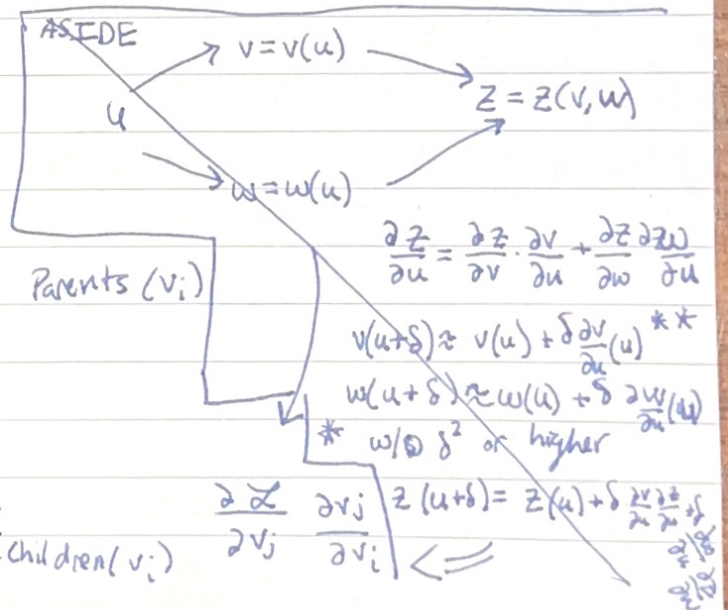 ASIDE
v = v(u)
u
z = z(v, w)
w = w(u)
∂z/∂u = ∂z/∂v · ∂v/∂u + ∂z/∂w ∂zw/∂u
Parents (vi)
v(u+δ) ≈ v(u) + δ ∂v/∂u (u) **
w(u+δ) ≈ w(u) + δ ∂w/∂u (u)
* w/o δ² or higher
∂ℒ/∂vj ∂vj/∂vi
z(u+δ) = z(u) + δ
children(vi)